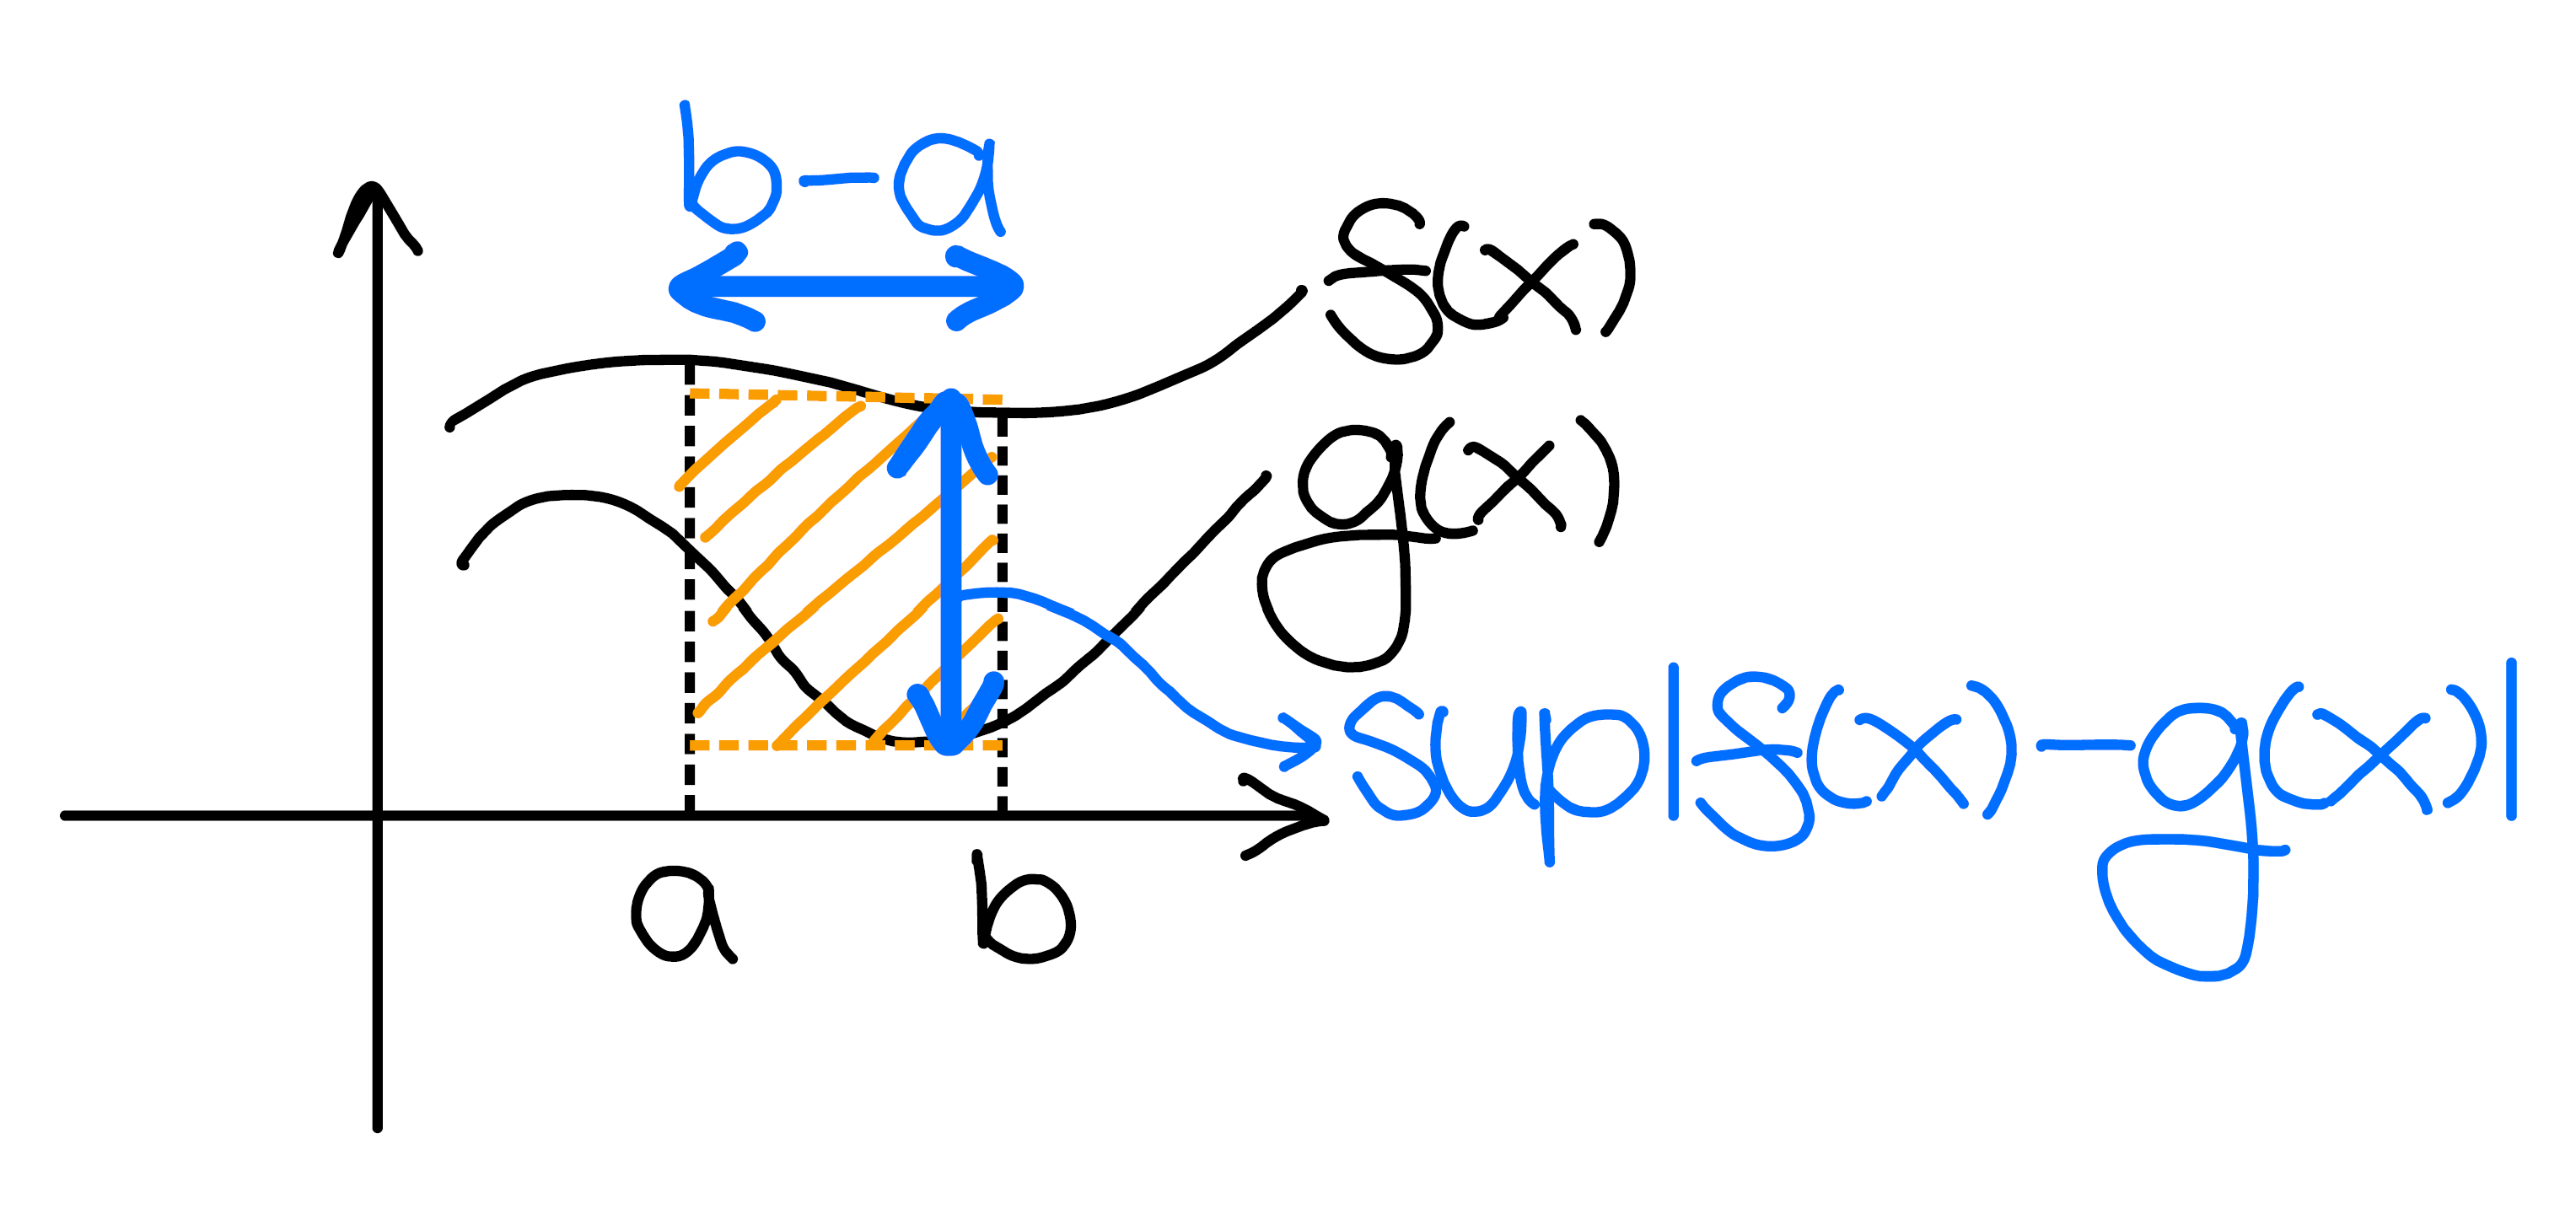 b-a
f(x)
g(x)
sup|f(x)-g(x)|
a
b